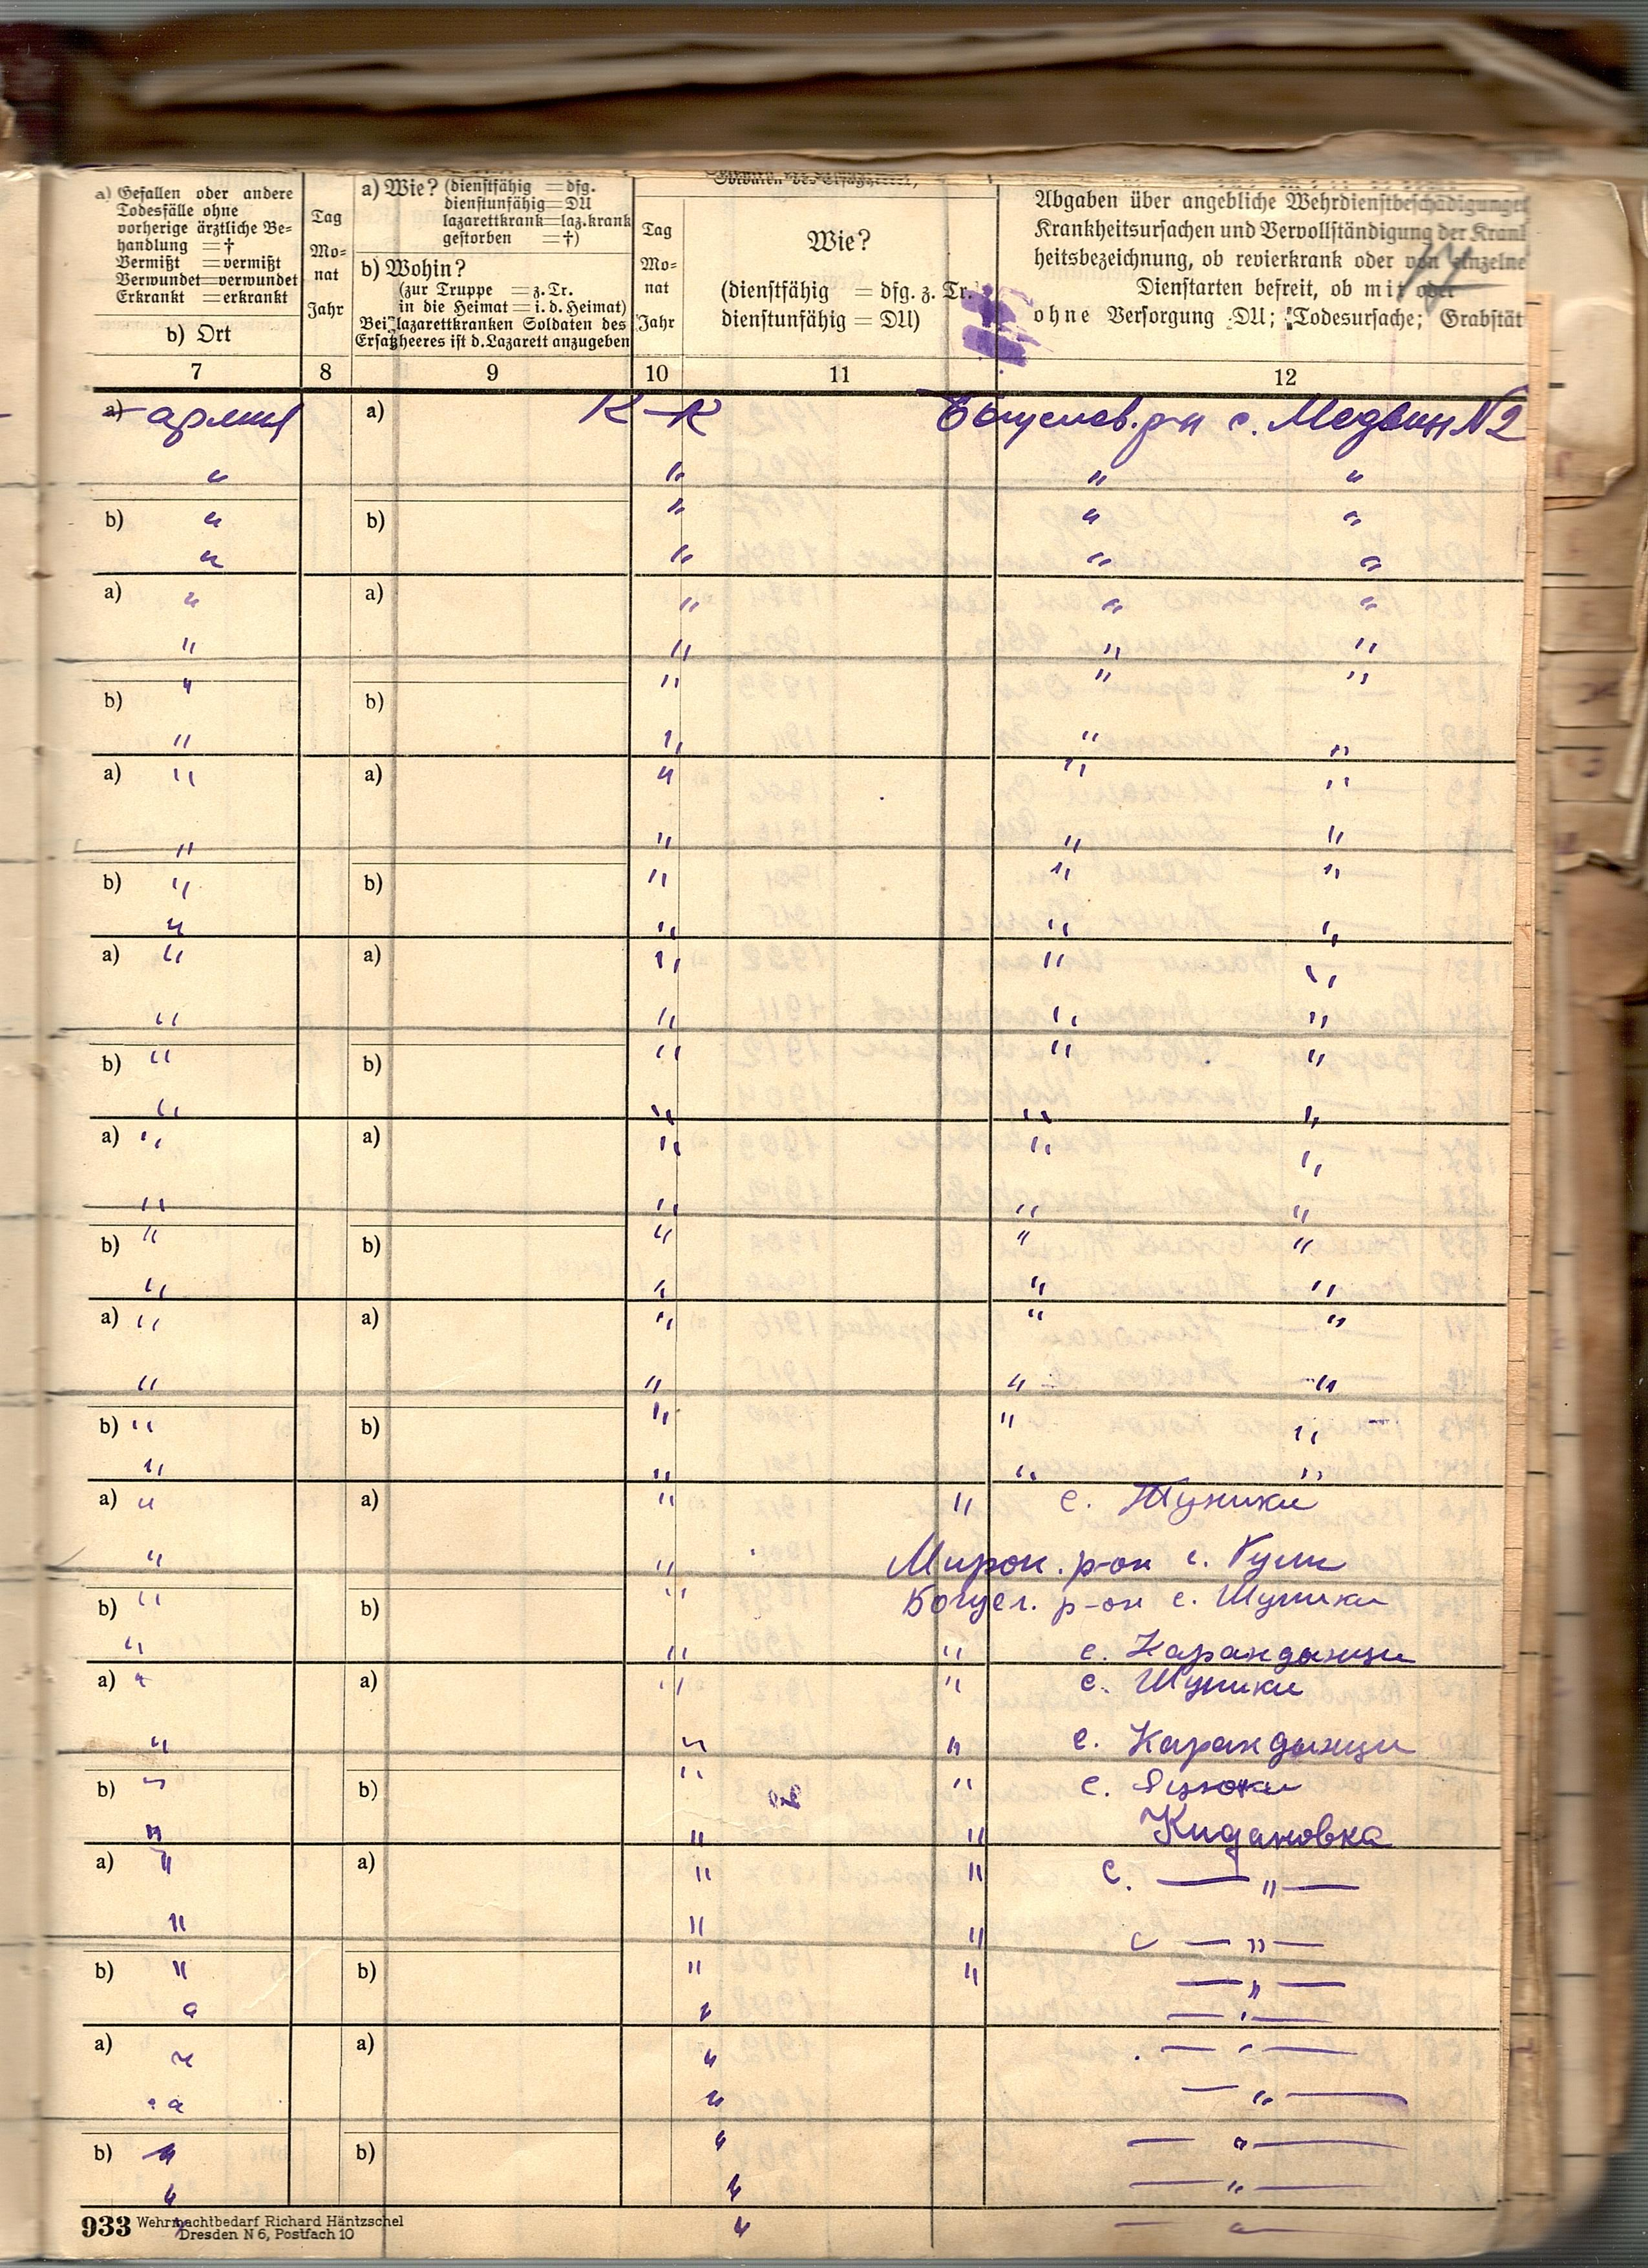 a) Gefallen oder andere
Todesfälle ohne
vorherige ärztliche Be-
handlung = †
Vermißt = vermißt
Verwundet = verwundet
Erkrankt = erkrankt
b) Ort
Tag
Mo-
nat
Jahr
a) Wie? (dienstfähig = dfg.
dienstunfähig = DU
lazarettkrank = laz.krank
gestorben = †)
b) Wohin?
(zur Truppe = z. Tr.
in die Heimat = i. d. Heimat)
Bei lazarettkranken Soldaten des
Ersatzheeres ist d. Lazarett anzugeben
Tag
Mo-
nat
Jahr
Wie?
(dienstfähig = dfg. z. Tr.
dienstunfähig = DU)
Abgaben über angebliche Wehrdienstbeschädigunge
Krankheitsursachen und Vervollständigung der Krank
heitsbezeichnung, ob revierkrank oder von einzelne
Dienstarten befreit, ob mit oder
ohne Versorgung DU; Todesursache; Grabstät
7 8 9 10 11 12
a) армия a) К-К Богуслав. р-н с. Медвин N2
" " " "
b) " b) " " "
" " " "
a) " a) " " "
" " " "
b) " b) " " "
" " " "
a) " a) " " "
" " " "
b) " b) " " "
" " " "
a) " a) " " "
" " " "
b) " b) " " "
" " " "
a) " a) " " "
" " " "
b) " b) " " "
" " " "
a) " a) " " "
" " " "
b) " b) " " "
" " " "
a) " a) " " с. Шупики
" " Мирон. р-он с. Гули
b) " b) " Богусл. р-он с. Шупики
" " " с. Карандинци
a) " a) " " с. Шупики
" " " с. Карандинци
b) " b) " " с.
" " " Кидановка
a) " a) " " с. — " —
" " " с — " —
b) " b) " " — " —
" " — " —
a) " a) " — " —
" " — " —
b) " b) " — " —
" " — " —
" " — " —
933 Wehrmachtbedarf Richard Häntzschel
Dresden N 6, Postfach 10